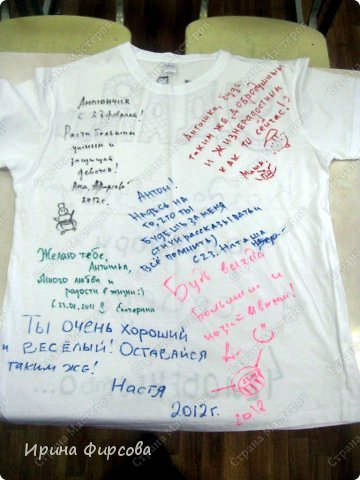 Антончик
с 23 февраля!
Расти большим
умным и
защищай
девочек!
2012г.
Антошка, будь
таким же добродушным
и жизнерадостным
как ты сейчас!
Маша
Антон!
Надеюсь на
то, что ты
будешь за меня
стихи рассказывать и
всё помнить)
с 23. Наташа
Желаю тебе,
Антошка,
Много любви и
радости в жизни:)
Екатерина
Будь всегда
большим и
позитивным!
2012
Ты очень хороший
и весёлый! Оставайся
таким же!
Настя
2012г.
Ирина Фирсова